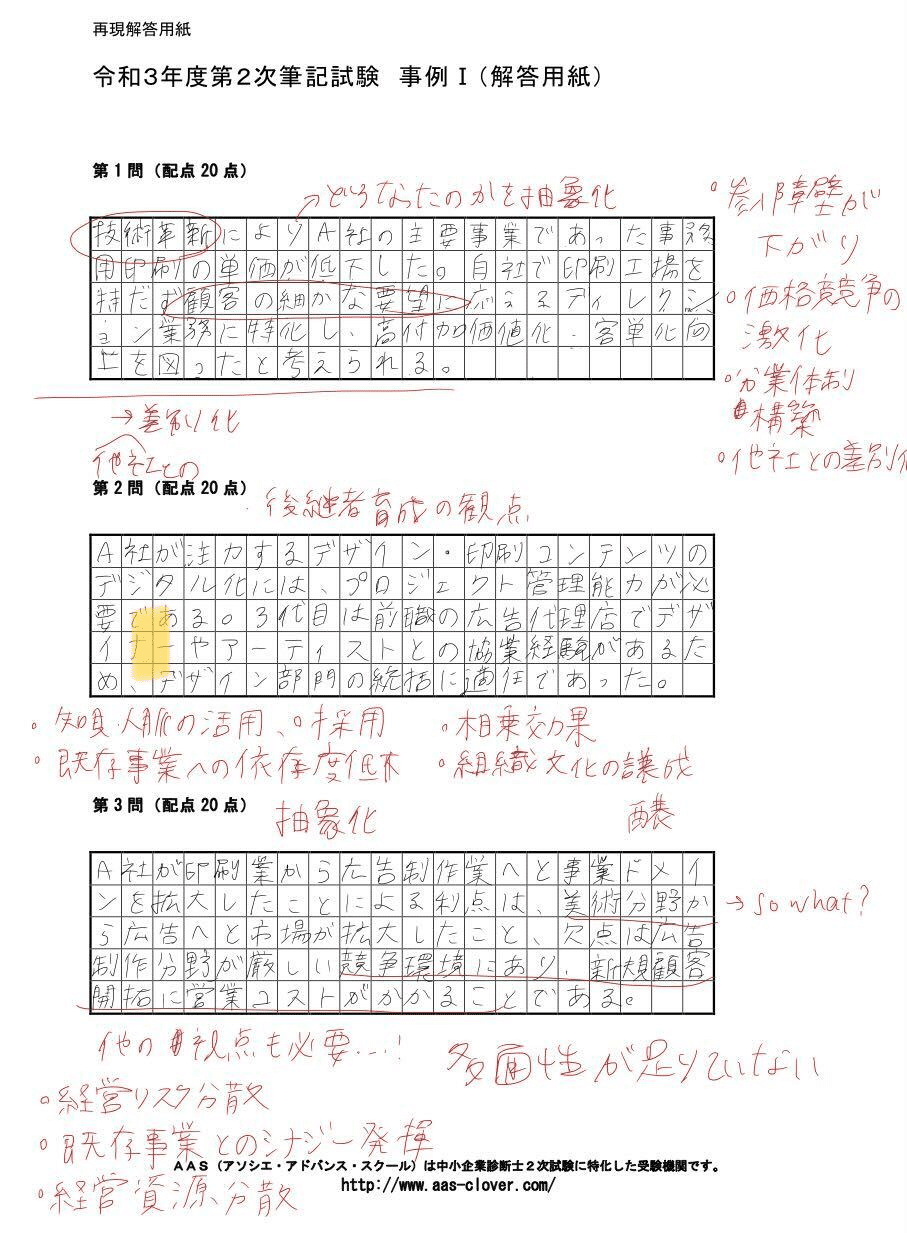 再現解答用紙
令和3年度第2次筆記試験 事例Ⅰ(解答用紙)
第1問(配点20点)
→どうなったのかを抽象化
技術革新によりA社の主要事業であった事務
用印刷の単価が低下した。自社で印刷工場を
持だず顧客の細かな要望に応えるディレクシ
ョン業務に特化し、高付加価値化・客単化向
上を図ったと考えられる。
。参入障壁が
下がり
。価格競争の
激化
。分業体制
構築
。他社との差別化
→差別化
他社との
第2問(配点20点)
・後継者育成の観点
A社が注力するデザイン・印刷コンテンツの
デジタル化には、プロジェクト管理能力が必
要である。3代目は前職の広告代理店でデザ
イナーやアーティストとの協業経験があるた
め、デザイン部門の統括に適任であった。
。知見・人脈の活用、。採用
。相乗効果
。既存事業への依存度低下
。組織文化の譲成
醸
第3問(配点20点)
抽象化
A社が印刷業から広告制作業へと事業ドメイ
ンを拡大したことによる利点は、美術分野か
ら広告へと市場が拡大したこと、欠点は広告
制作分野が厳しい競争環境にあり、新規顧客
開拓に営業コストがかかることである。
→so what?
他の視点も必要…!
多面性が足りていない
。経営リスク分散
。既存事業とのシナジー発揮
。経営資源分散
AAS(アソシエ・アドバンス・スクール)は中小企業診断士2次試験に特化した受験機関です。
http://www.aas-clover.com/